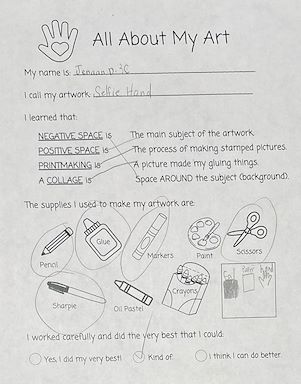 All About My Art
My name is:
I call my artwork: Selfie Hand
I learned that:
NEGATIVE SPACE is The main subject of the artwork.
POSITIVE SPACE is The process of making stamped pictures.
PRINTMAKING is A picture made my gluing things.
A COLLAGE is Space AROUND the subject (background).
The supplies I used to make my artwork are:
Pencil
Glue
Markers
Paint
Scissors
Sharpie
Oil Pastel
Crayons
I worked carefully and did the very best that I could:
Yes, I did my very best!
Kind of.
I think I can do better.